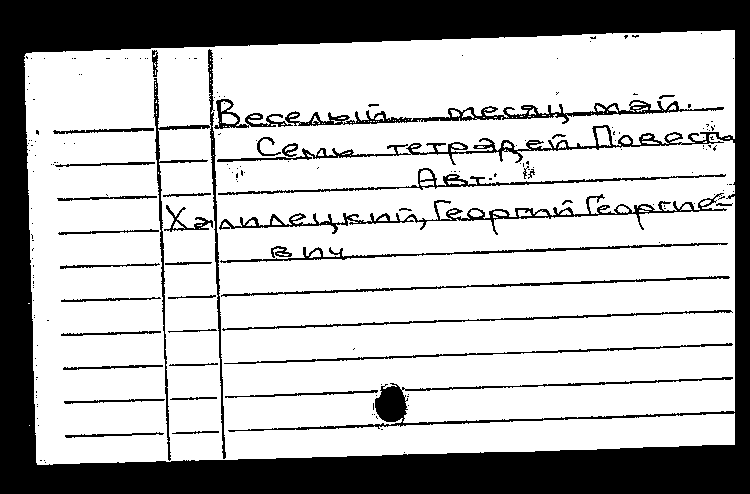 Веселый месяц май.
Семь тетрадей. Повесть
Авт.:
Халилецкий, Георгий Георгие-
вич